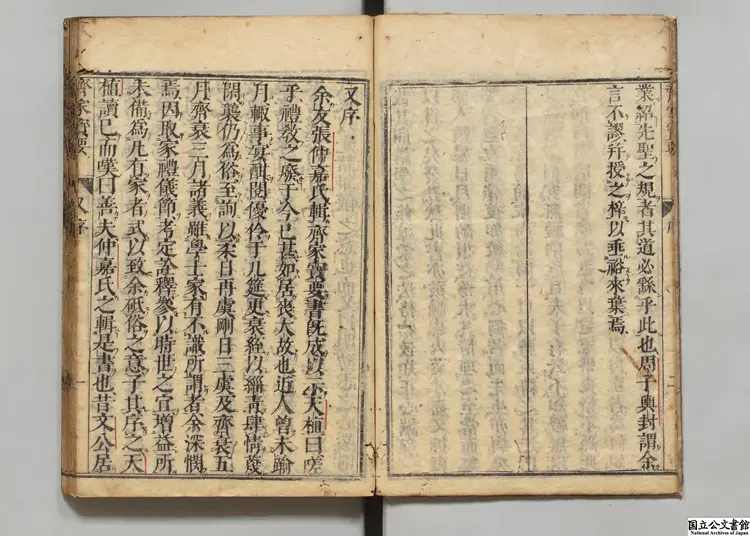 業紹先聖之規者其道必繇乎此也周子輿封謂余
言不謬幷授之梓以垂裕來葉焉
又序
余友張仲嘉氏輯齊家寶要書旣成以示天植曰嗟
乎禮教之廢于今已甚如居喪大故也近人曾未踰
月輒事宴酣閱優伶于几筵更衰絰以緇靑肆情蔑
閑襲仍爲俗至詢以柔日再虞剛日三虞及齊衰五
月齊衰三月諸義雖學士家有不識所謂者余深憫
焉因取家禮儀節考定詮釋參以時世之宜增益所
未備爲凡有家者式以致余砥俗之意子其序之天
植讀已而嘆曰善夫仲嘉氏之輯是書也昔文公居
齊家寶要 又序 一
国立公文書館
National Archives of Japan